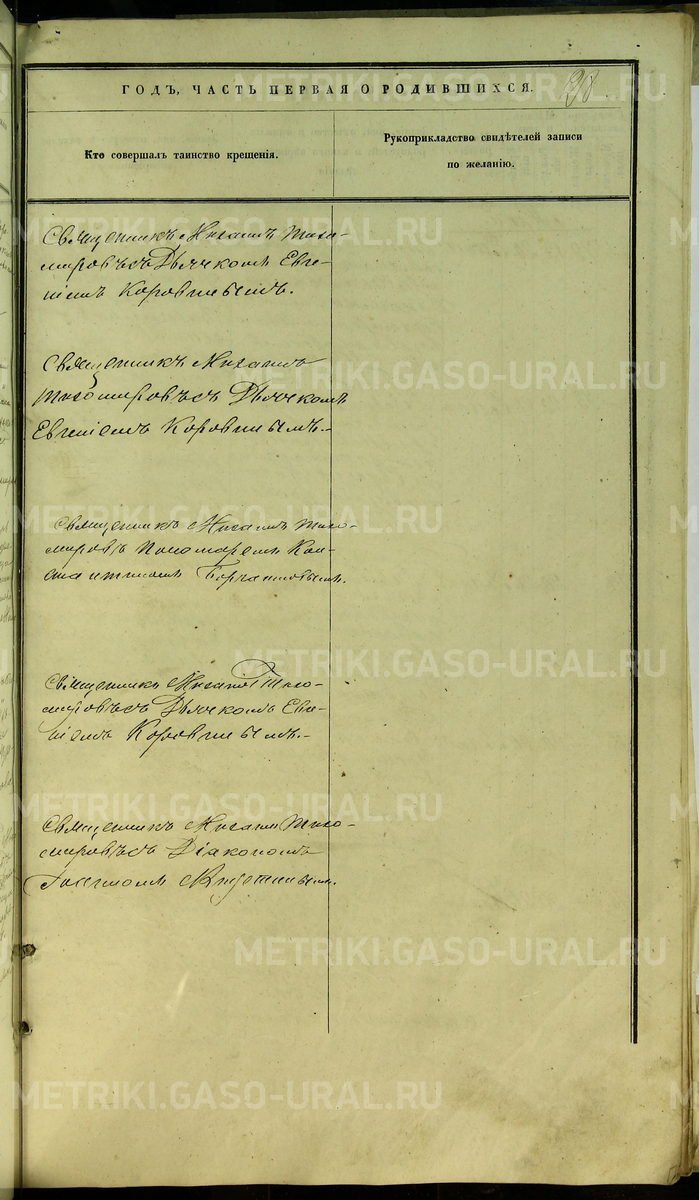 ГОДЪ, ЧАСТЬ ПЕРВАЯ О РОДИВШИХСЯ.
Кто совершалъ таинство крещенія.
Рукоприкладство свидѣтелей записи
по желанію.
Священникъ Михаилъ Тихо-
мировъ съ Дьячкомъ Евге-
ніемъ Коровинымъ.
Священникъ Михаилъ
Тихомировъ съ Дьячкомъ
Евгеніемъ Коровинымъ.-
Священникъ Михаилъ Тихо-
мировъ Пономаремъ Кон-
стантиномъ
Священникъ Михаилъ Тихо-
мировъ съ Дьячкомъ Евге-
ніемъ Коровинымъ.-
Священникъ Михаилъ Тихо-
мировъ съ Діакономъ
METRIKI.GASO-URAL.RU